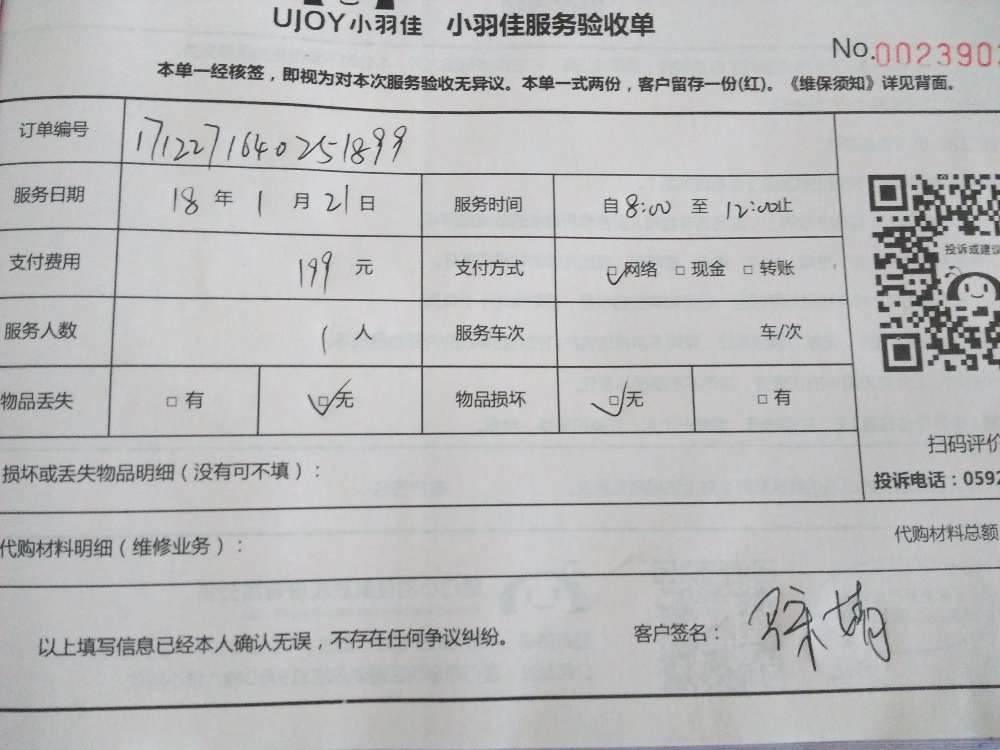 UJOY小羽佳 小羽佳服务验收单
No.002390
本单一经核签，即视为对本次服务验收无异议。本单一式两份，客户留存一份(红)。《维保须知》详见背面。
订单编号 1712271640251899
服务日期 18 年 1 月 21 日 服务时间 自8:00 至 12:00止
投诉或建议
支付费用 199 元 支付方式 □网络 □现金 □转账
服务人数 1 人 服务车次 车/次
物品丢失 □ 有 □无 物品损坏 □无 □有
扫码评价
损坏或丢失物品明细（没有可不填）：
投诉电话：0592
代购材料明细（维修业务）：
代购材料总额
以上填写信息已经本人确认无误，不存在任何争议纠纷。 客户签名：